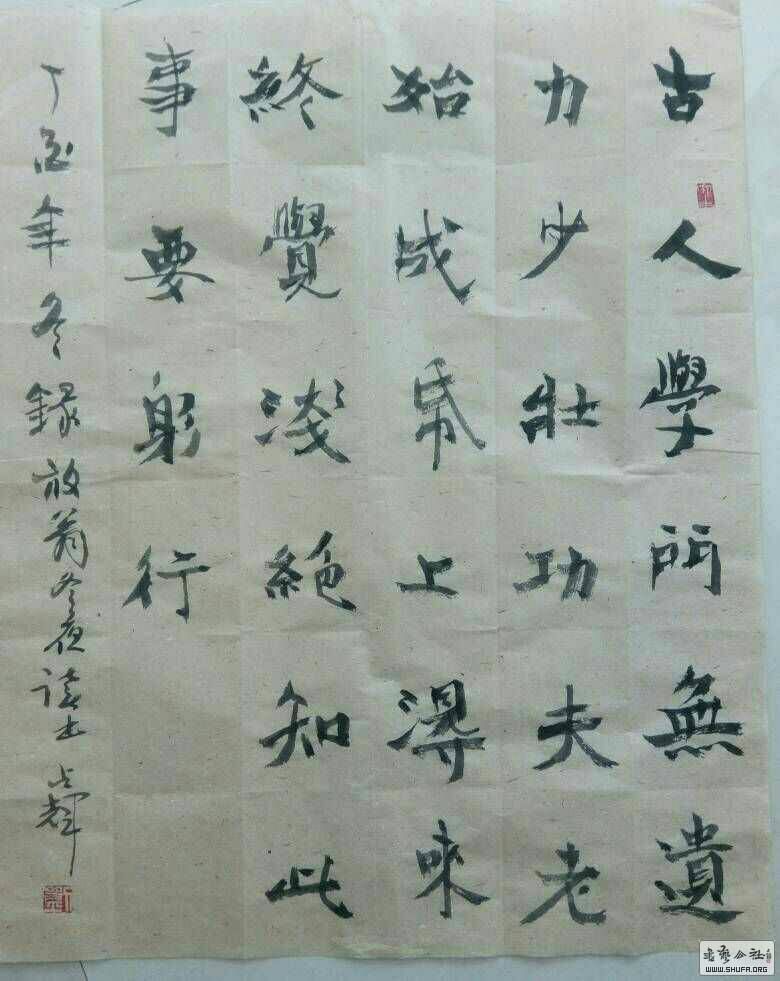 古人學問無遺
力少壯功夫老
始成帋上得味
終覺淺絕知此
事要躬行
丁酉年冬錄放翁冬夜讀书
書藝公社
WWW.SHUFA.ORG